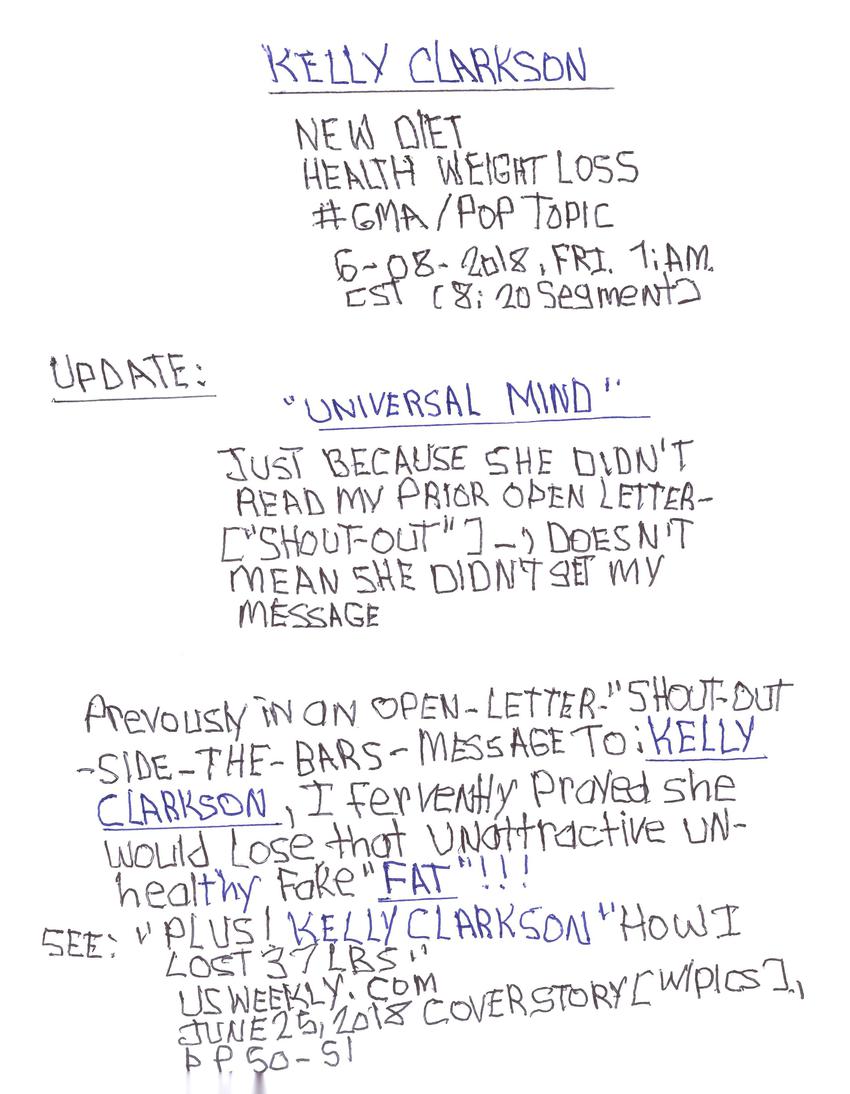 KELLY CLARKSON
NEW DIET
HEALTH WEIGHT LOSS
#GMA/POP TOPIC
6-08-2018, FRI. 7:AM.
EST (8:20 Segment)
UPDATE:
"UNIVERSAL MIND"
JUST BECAUSE SHE DIDN'T
READ MY PRIOR OPEN LETTER-
["SHOUT-OUT"]-, DOESN'T
MEAN SHE DIDN'T GET MY
MESSAGE
Prevously iN an OPEN-LETTER-"SHOUT-OUT
-SIDE-THE-BARS-MESSAGE TO: KELLY
CLARKSON, I fervently Prayed she
would Lose that UNattractive UN-
healthy Fake "FAT"!!!
SEE: "PLUS! KELLY CLARKSON "HOW I
LOST 37 LBS"
USWEEKLY.COM
JUNE 25, 2018 COVER STORY [W/PICS].,
P P. 50-51